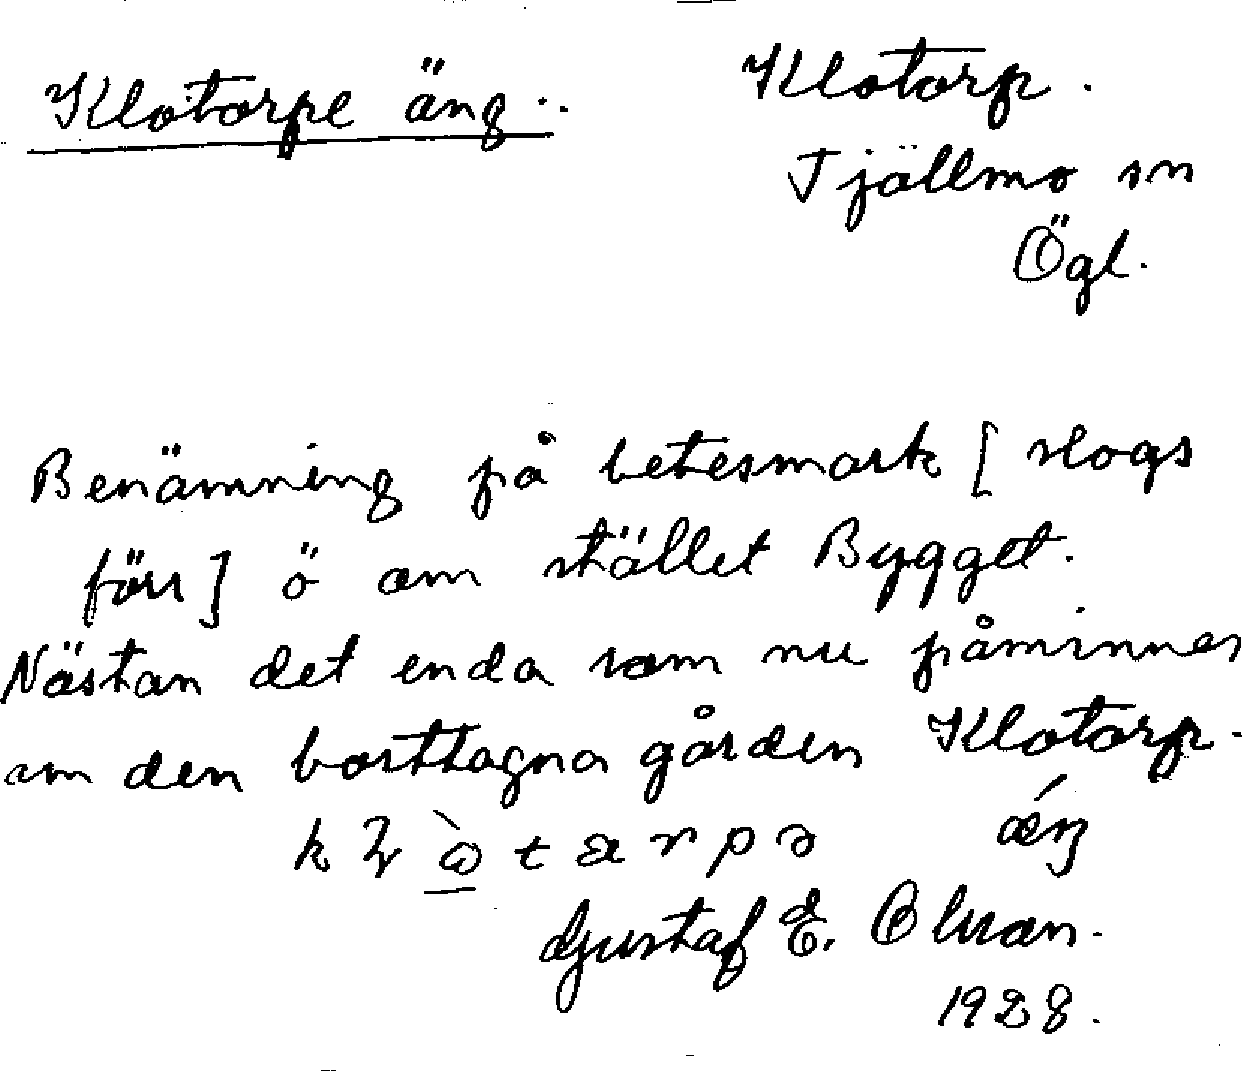 Klotorpe äng..
Klotorp.
Tjällmo sn
Ögl.
Benämning på betesmark [slogs
förr] ö om stället Bygget.
Nästan det enda som nu påminner
om den borttagna gården Klotorp.
Gustaf E. Olsson.
1928.